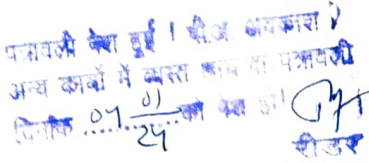 पत्रावली पेश हुई । पी.अ अवकाश
अन्य कार्यो में व्यस्त पत्रावली
दिनांक 07 01/24 को पेश हो।
रीडर